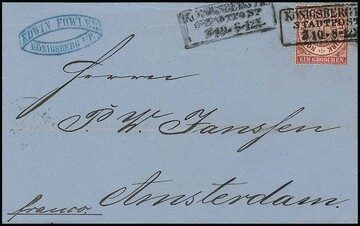 EDWIN FOWLER
KÖNIGSBERG I/P.
KÖNIGSBERG I.PR.
STADTPOST
KÖNIGSBERG
STADTPOST
EIN GROSCHEN
Herrn
P. W. Janssen
Amsterdam.
franco.